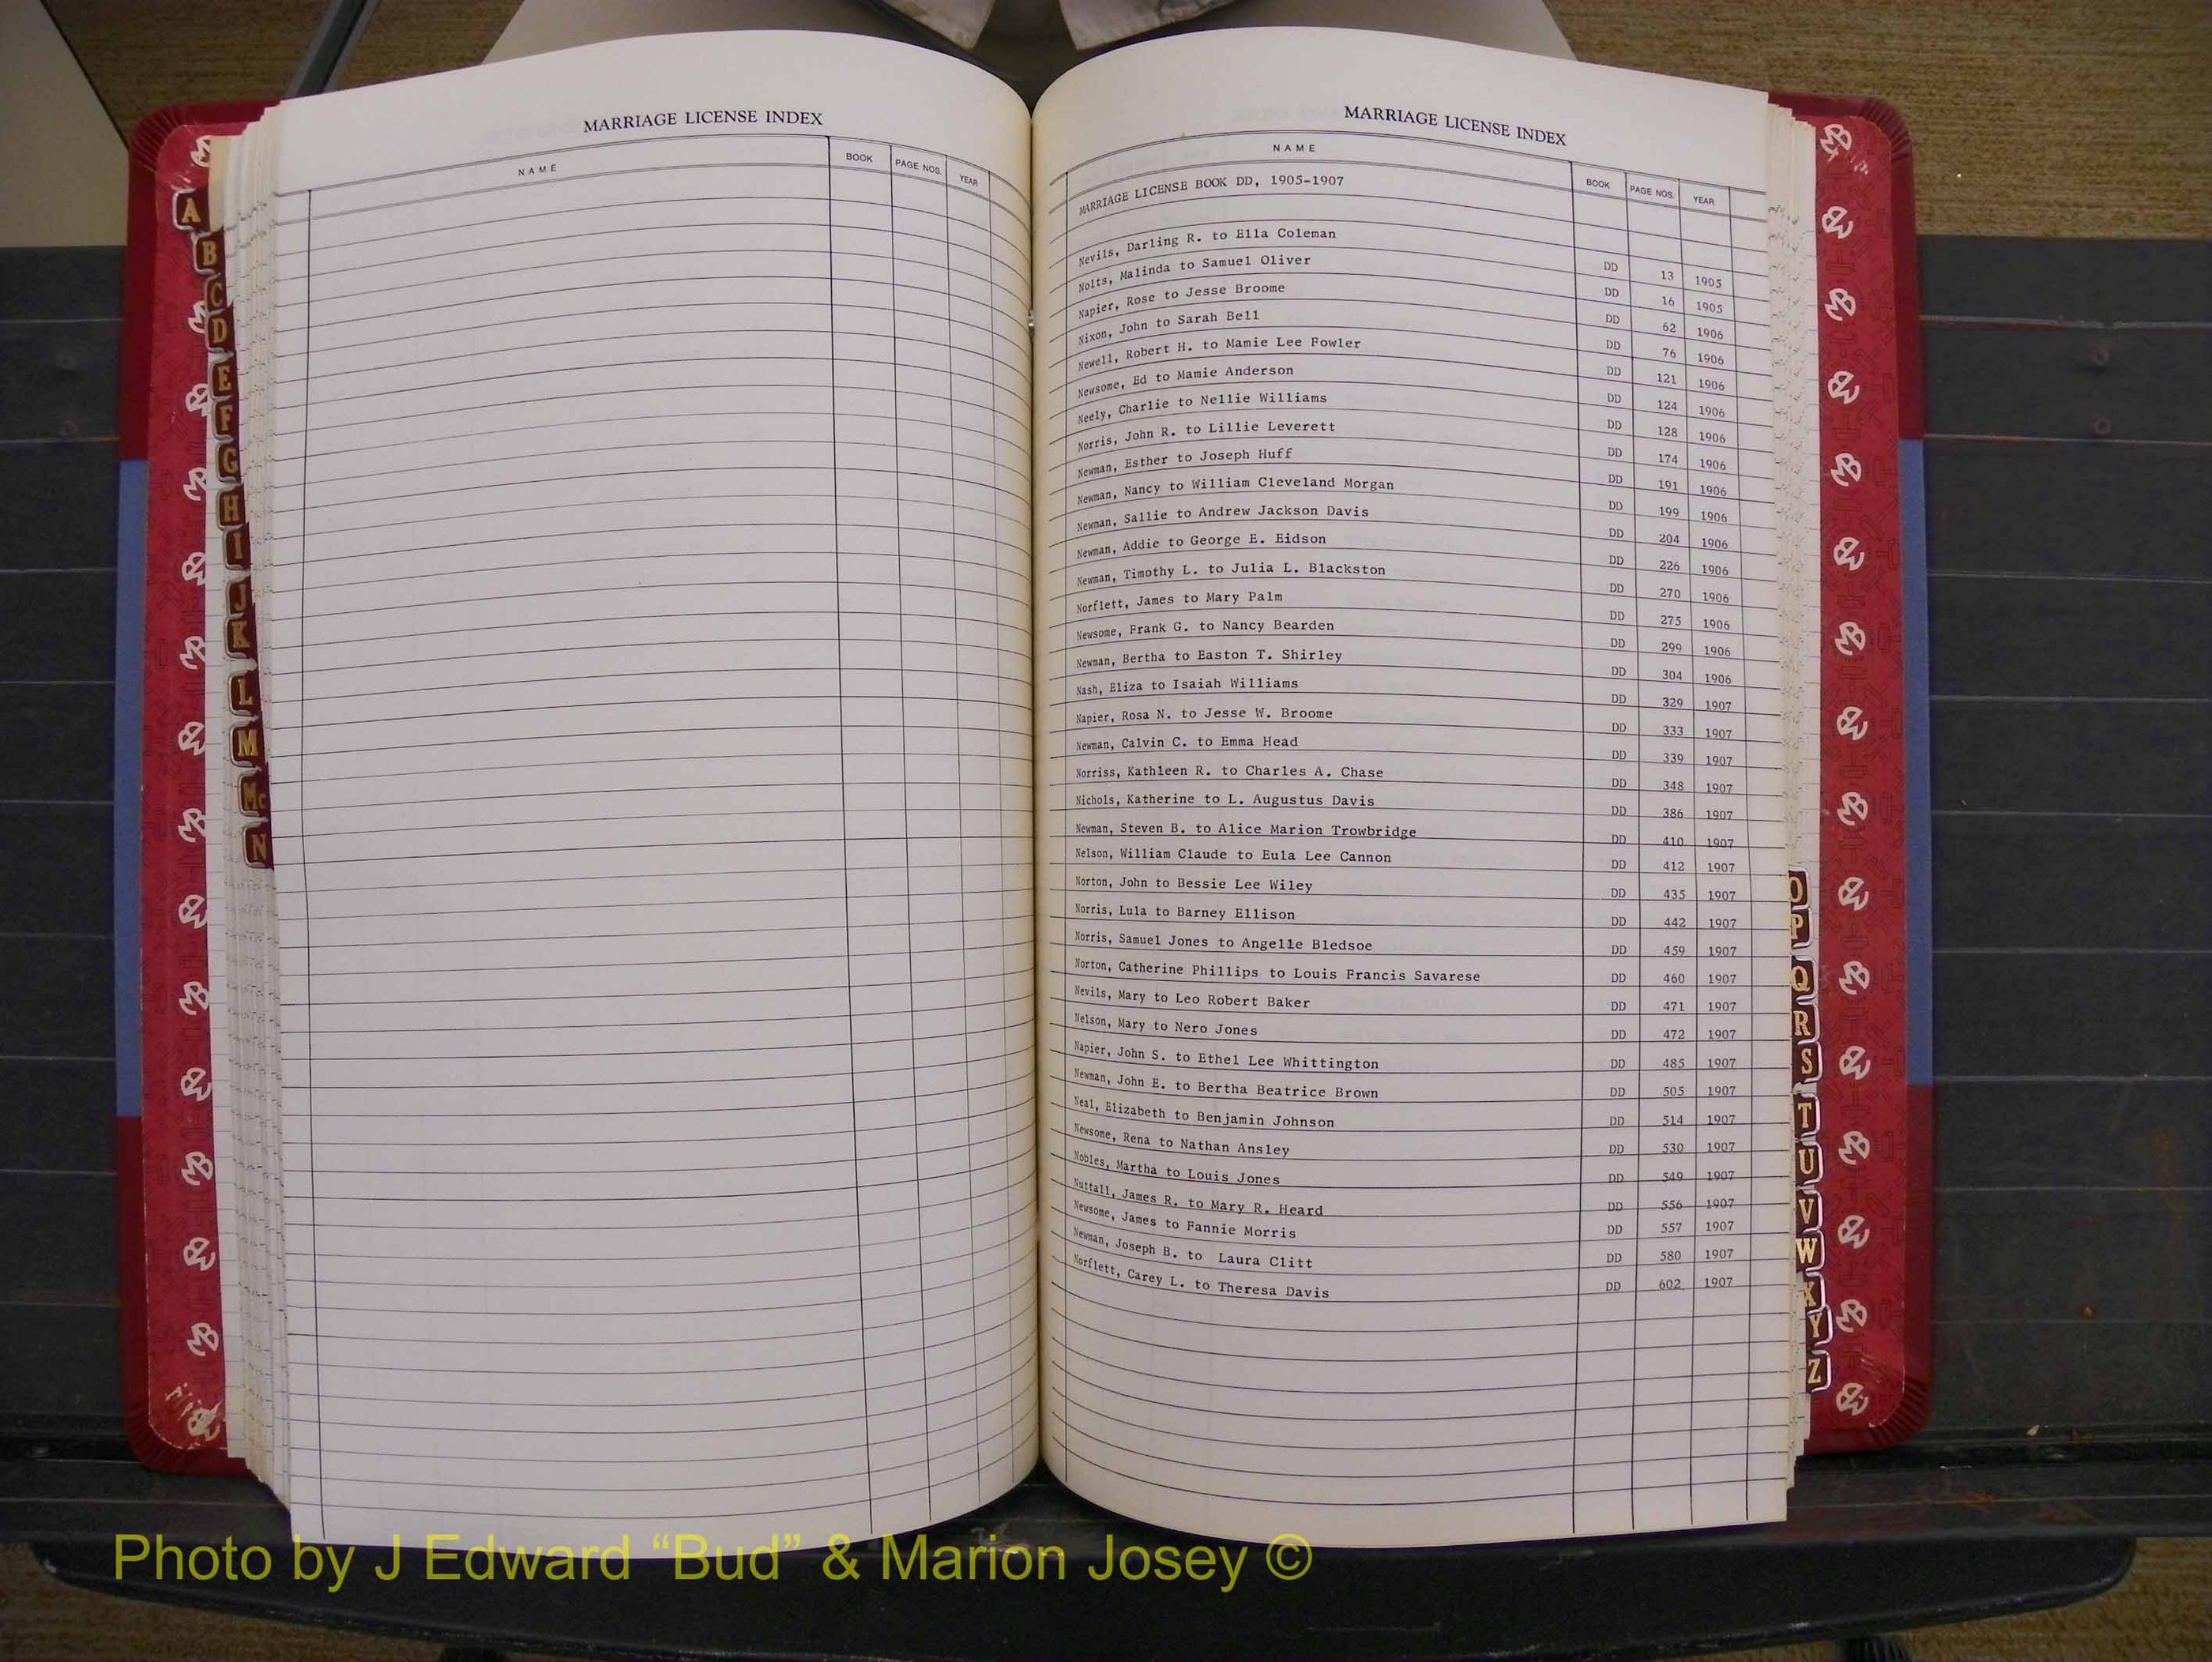 MARRIAGE LICENSE INDEX
NAME BOOK PAGE NOS. YEAR
A
B
C
D
E
F
G
H
I
J
K
L
M
Mc
N
MARRIAGE LICENSE INDEX
NAME BOOK PAGE NOS. YEAR
MARRIAGE LICENSE BOOK DD, 1905-1907
Nevils, Darling R. to Ella Coleman DD 13 1905
Nolts, Malinda to Samuel Oliver DD 16 1905
Napier, Rose to Jesse Broome DD 62 1906
Nixon, John to Sarah Bell DD 76 1906
Newell, Robert H. to Mamie Lee Fowler DD 121 1906
Newsome, Ed to Mamie Anderson DD 124 1906
Neely, Charlie to Nellie Williams DD 128 1906
Norris, John R. to Lillie Leverett DD 174 1906
Newman, Esther to Joseph Huff DD 191 1906
Newman, Nancy to William Cleveland Morgan DD 199 1906
Newman, Sallie to Andrew Jackson Davis DD 204 1906
Newman, Addie to George E. Eidson DD 226 1906
Newman, Timothy L. to Julia L. Blackston DD 270 1906
Norflett, James to Mary Palm DD 275 1906
Newsome, Frank G. to Nancy Bearden DD 299 1906
Newman, Bertha to Easton T. Shirley DD 304 1906
Nash, Eliza to Isaiah Williams DD 329 1907
Napier, Rosa N. to Jesse W. Broome DD 333 1907
Newman, Calvin C. to Emma Head DD 339 1907
Norriss, Kathleen R. to Charles A. Chase DD 348 1907
Nichols, Katherine to L. Augustus Davis DD 386 1907
Newman, Steven B. to Alice Marion Trowbridge DD 410 1907
Nelson, William Claude to Eula Lee Cannon DD 412 1907
Norton, John to Bessie Lee Wiley DD 435 1907
Norris, Lula to Barney Ellison DD 442 1907
Norris, Samuel Jones to Angelle Bledsoe DD 459 1907
Norton, Catherine Phillips to Louis Francis Savarese DD 460 1907
Nevils, Mary to Leo Robert Baker DD 471 1907
Nelson, Mary to Nero Jones DD 472 1907
Napier, John S. to Ethel Lee Whittington DD 485 1907
Newman, John E. to Bertha Beatrice Brown DD 505 1907
Neal, Elizabeth to Benjamin Johnson DD 514 1907
Newsome, Rena to Nathan Ansley DD 530 1907
Nobles, Martha to Louis Jones DD 549 1907
Nuttall, James R. to Mary R. Heard DD 556 1907
Newsome, James to Fannie Morris DD 557 1907
Newman, Joseph B. to Laura Clitt DD 580 1907
Norflett, Carey L. to Theresa Davis DD 602 1907
O
P
Q
R
S
T
U
V
W
X
Y
Z
Photo by J Edward “Bud” & Marion Josey ©